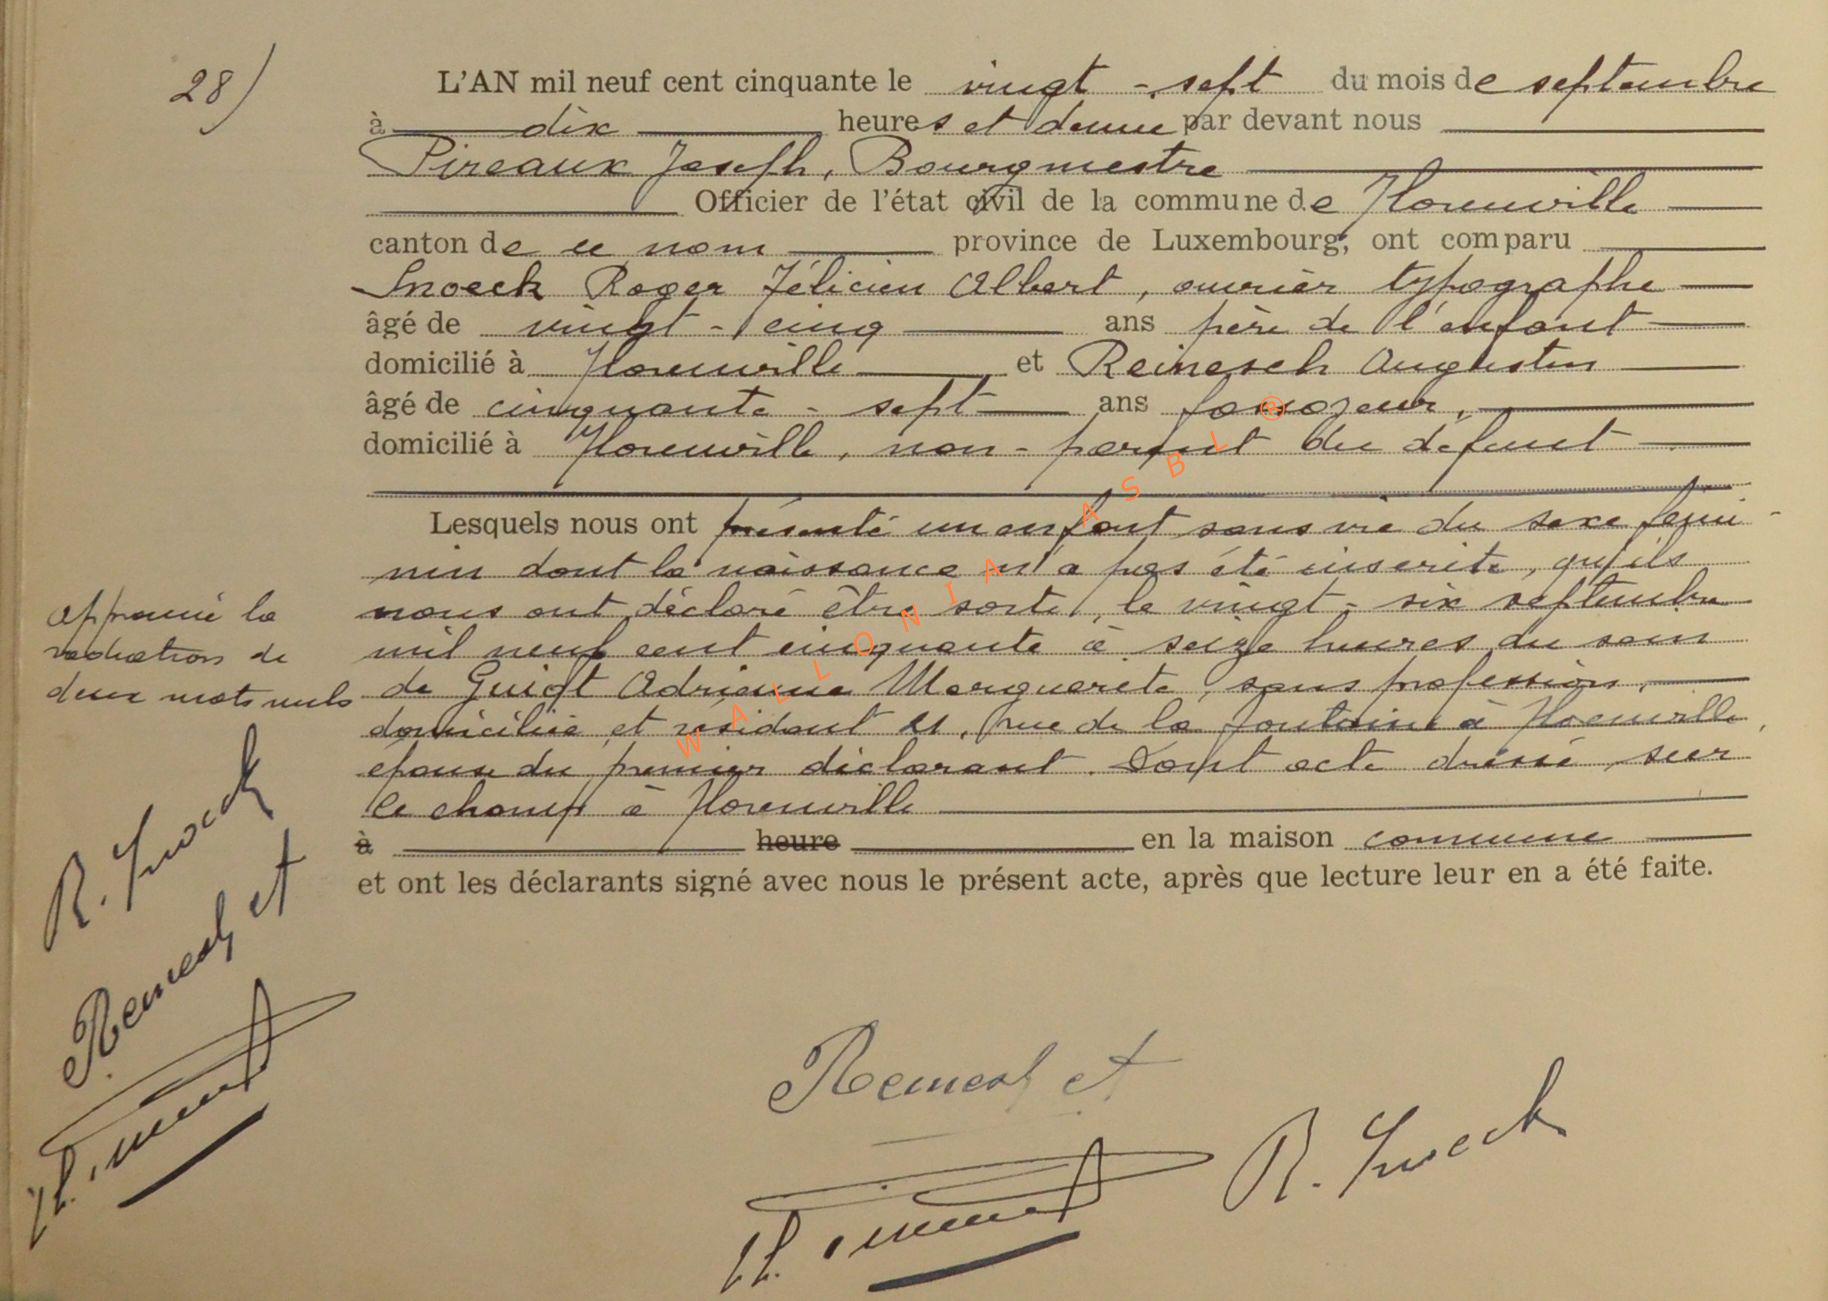 28)
L'AN mil neuf cent cinquante le vingt-sept du mois de septembre
à dix heures et demie par devant nous
Pireaux Joseph, Bourgmestre
Officier de l'état civil de la commune de Florenville
canton de ce nom province de Luxembourg, ont comparu
Snoeck Roger Félicien Albert, ouvrier typographe
âgé de vingt-cinq ans père de l'enfant
domicilié à Florenville et Reinesch Augustin
âgé de cinquante-sept ans fossoyeur,
domicilié à Florenville, non-parent du défunt
Lesquels nous ont présenté un enfant sans vie du sexe fémi-
nin dont la naissance n'a pas été inscrite, qu'ils
nous ont déclaré être sorti, le vingt-six septembre
mil neuf cent cinquante à seize heures du sein
de Guiot Adrienne Marguerite, sans profession,
domiciliée et résidant 21, rue de la fontaine à Florenville,
épouse du premier déclarant. Dont acte dressé sur
le champ à Florenville
à heure en la maison commune
et ont les déclarants signé avec nous le présent acte, après que lecture leur en a été faite.
approuvé la
radiation de
deux mots nuls
R. Snoeck
Reinesch A
Reinesch A
R. Snoeck
WALLONIA ASBL ®